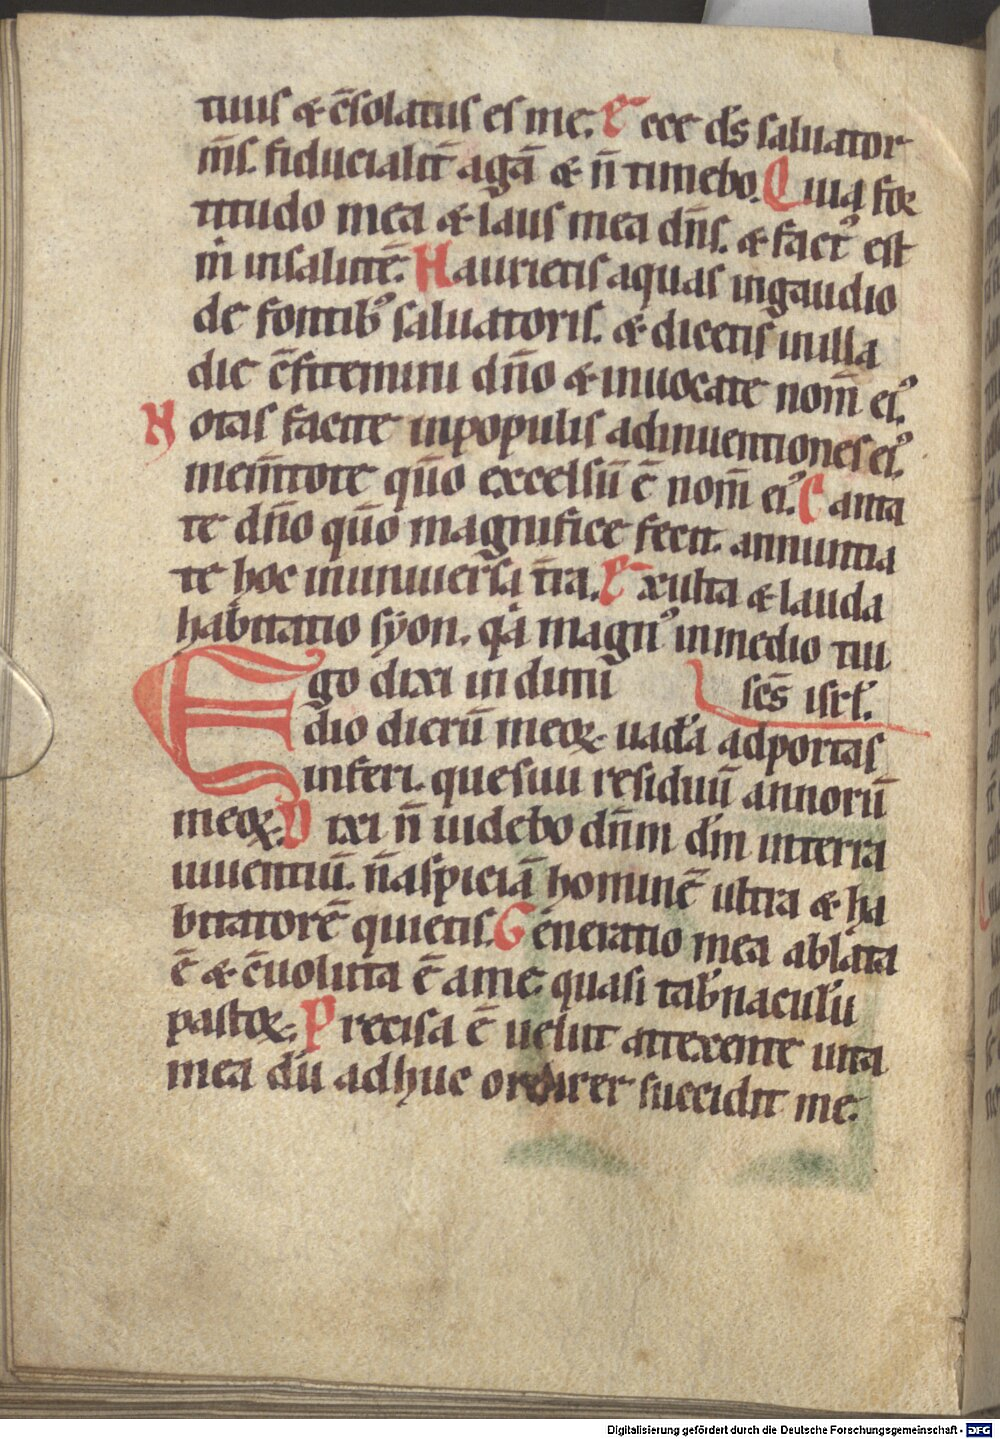 tuus & c̄solatus es me. Ecce ds̄ saluator
ms̄. fiducialit̄ agā & n̄ timebo. Quia for
titudo mea & laus mea dn̄s. & fact᷒ est
ṁ insalutē. Haurietis aquas ingaudio
de fontib᷒ saluatoris. & dicetis inilla
die c̄fitemini dn̄o & inuocate nom̄ ei᷒.
Notas facite inpopulis adinuentiones ei᷒.
mem̄tote qūo excelsū ē nom̄ ei᷒. Canta
te dn̄o qūo magnifice fecit. annuntia
te hoc inuniuersa t̄ra. Exulta & lauda
habitatio syon. qa magn᷒ inmedio tui
Ego dixi in dimi
scs̄ isrl̄.
dio dierū meoꝝ. uadā adportas
inferi. quesiui residuū annorū
meoꝝ. Dixi n̄ uidebo dn̄m dm̄ interra
uiuentiū. n̄aspiciā hominē ultra & ha
bitatorē quietis. Generatio mea ablata
ē & c̄uoluta ē ame quasi tab̄naculū
pastoꝝ. Precisa ē uelut attexente uita
mea dū adhuc ordirer succidit me.
Digitalisierung gefördert durch die Deutsche Forschungsgemeinschaft - DFG